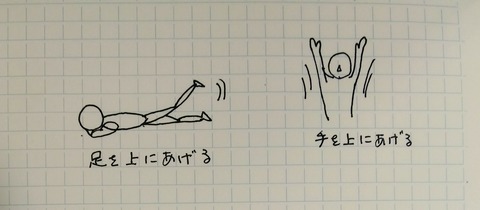 足を上にあげる
手を上にあげる